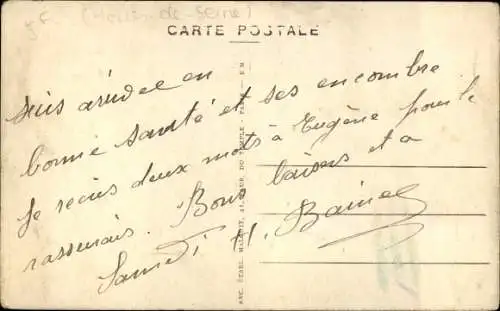 (Moulin-de-Seine)
CARTE POSTALE
suis arivée en
bonne santé et ses encombre
Je recris deux mots à Eugène pour le
rassurais. Bons baisers et a
Samedi. H. Bainee
ANC. ÉTABL. MALCUIT, 41, FAUB. DU TEMPLE - PARIS - E M